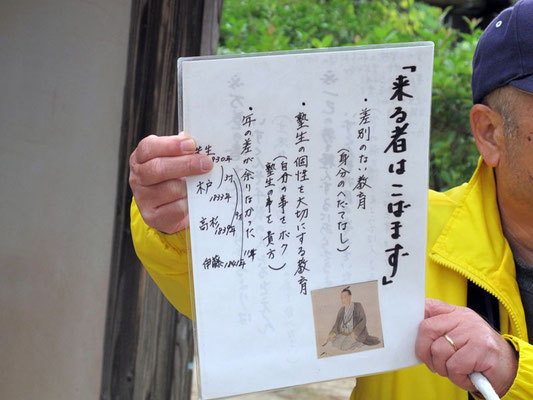 「来る者はこばまず」
・差別のない教育
(身分のへだてなし)
・塾生の個性を大切にする教育
(自分の事をボク
塾生の事を貴方)
・年の差が余りなかった
先生
1830年
木戸
1833年
高杉
1839年
伊藤1841年